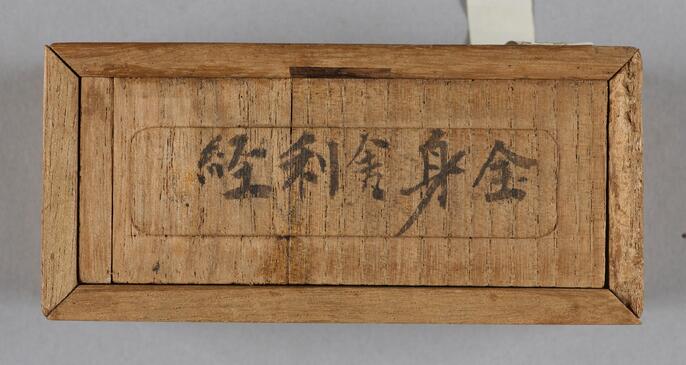 全身舎利経